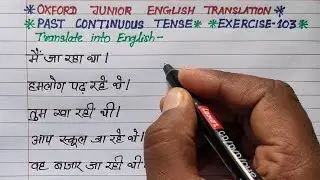 *OXFORD JUNIOR ENGLISH TRANSLATION*
*PAST CONTINUOUS TENSE* *EXERCISE-103*
Translate into English-
मैं जा रहा था।
हमलोग पढ़ रहे थे।
तुम क्या रही थी।
आप स्कूल जा रहे थे।
वह बाजार जा रही थी।